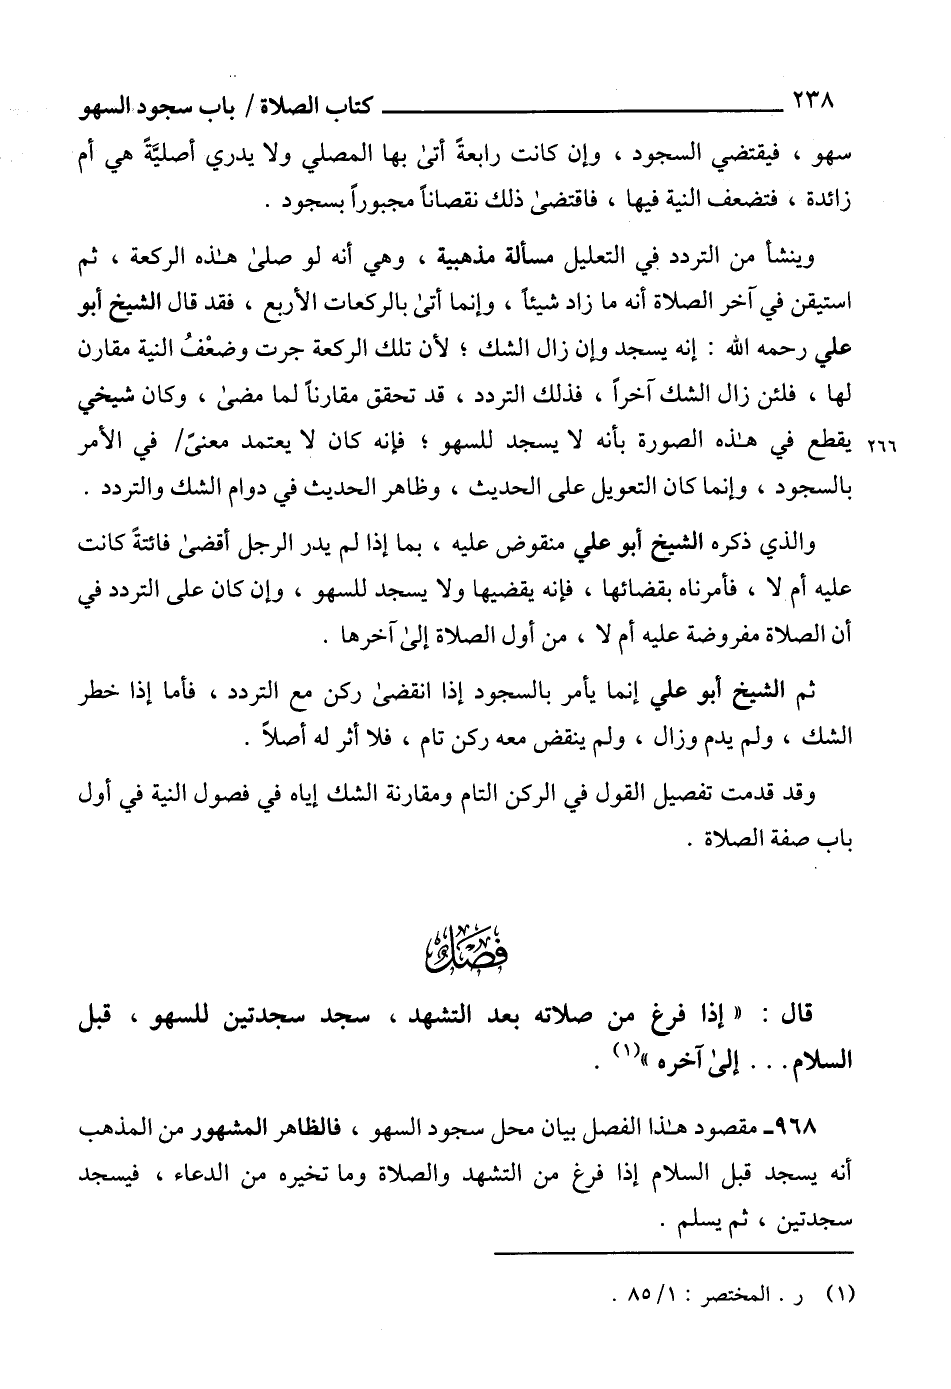 ٢٣٨ كتاب الصلاة / باب سجود السهو
سهو ، فيقتضي السجود ، وإن كانت رابعةً أتىٰ بها المصلي ولا يدري أصليَّةً هي أم
زائدة ، فتضعف النية فيها ، فاقتضىٰ ذلك نقصاناً مجبوراً بسجود .
وينشأ من التردد في التعليل مسألة مذهبية ، وهي أنه لو صلىٰ هـٰذه الركعة ، ثم
استيقن في آخر الصلاة أنه ما زاد شيئاً ، وإنما أتىٰ بالركعات الأربع ، فقد قال الشيخ أبو
علي رحمه الله : إنه يسجد وإن زال الشك ؛ لأن تلك الركعة جرت وضعْفُ النية مقارن
لها ، فلئن زال الشك آخراً ، فذلك التردد ، قد تحقق مقارناً لما مضىٰ ، وكان شيخي
٢٦٦ يقطع في هـٰذه الصورة بأنه لا يسجد للسهو ؛ فإنه كان لا يعتمد معنىً/ في الأمر
بالسجود ، وإنما كان التعويل على الحديث ، وظاهر الحديث في دوام الشك والتردد .
والذي ذكره الشيخ أبو علي منقوض عليه ، بما إذا لم يدر الرجل أقضىٰ فائتةً كانت
عليه أم لا ، فأمرناه بقضائها ، فإنه يقضيها ولا يسجد للسهو ، وإن كان على التردد في
أن الصلاة مفروضة عليه أم لا ، من أول الصلاة إلىٰ آخرها .
ثم الشيخ أبو علي إنما يأمر بالسجود إذا انقضىٰ ركن مع التردد ، فأما إذا خطر
الشك ، ولم يدم وزال ، ولم ينقض معه ركن تام ، فلا أثر له أصلاً .
وقد قدمت تفصيل القول في الركن التام ومقارنة الشك إياه في فصول النية في أول
باب صفة الصلاة .
فصل
قال : « إذا فرغ من صلاته بعد التشهد ، سجد سجدتين للسهو ، قبل
السلام . . . إلىٰ آخره »(١) .
٩٦٨ـ مقصود هـٰذا الفصل بيان محل سجود السهو ، فالظاهر المشهور من المذهب
أنه يسجد قبل السلام إذا فرغ من التشهد والصلاة وما تخيره من الدعاء ، فيسجد
سجدتين ، ثم يسلم .
(١) ر . المختصر : ١/ ٨٥ .